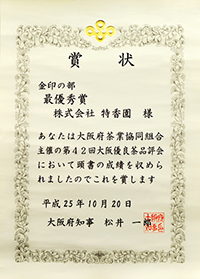 賞状
金印の部
最優秀賞
株式会社 特香園 様
あなたは大阪府茶業協同組合
主催の第42回大阪優良茶品評会
において頭書の成績を収めら
れましたのでこれを賞します
平成25年10月20日
大阪府知事 松井 一郎